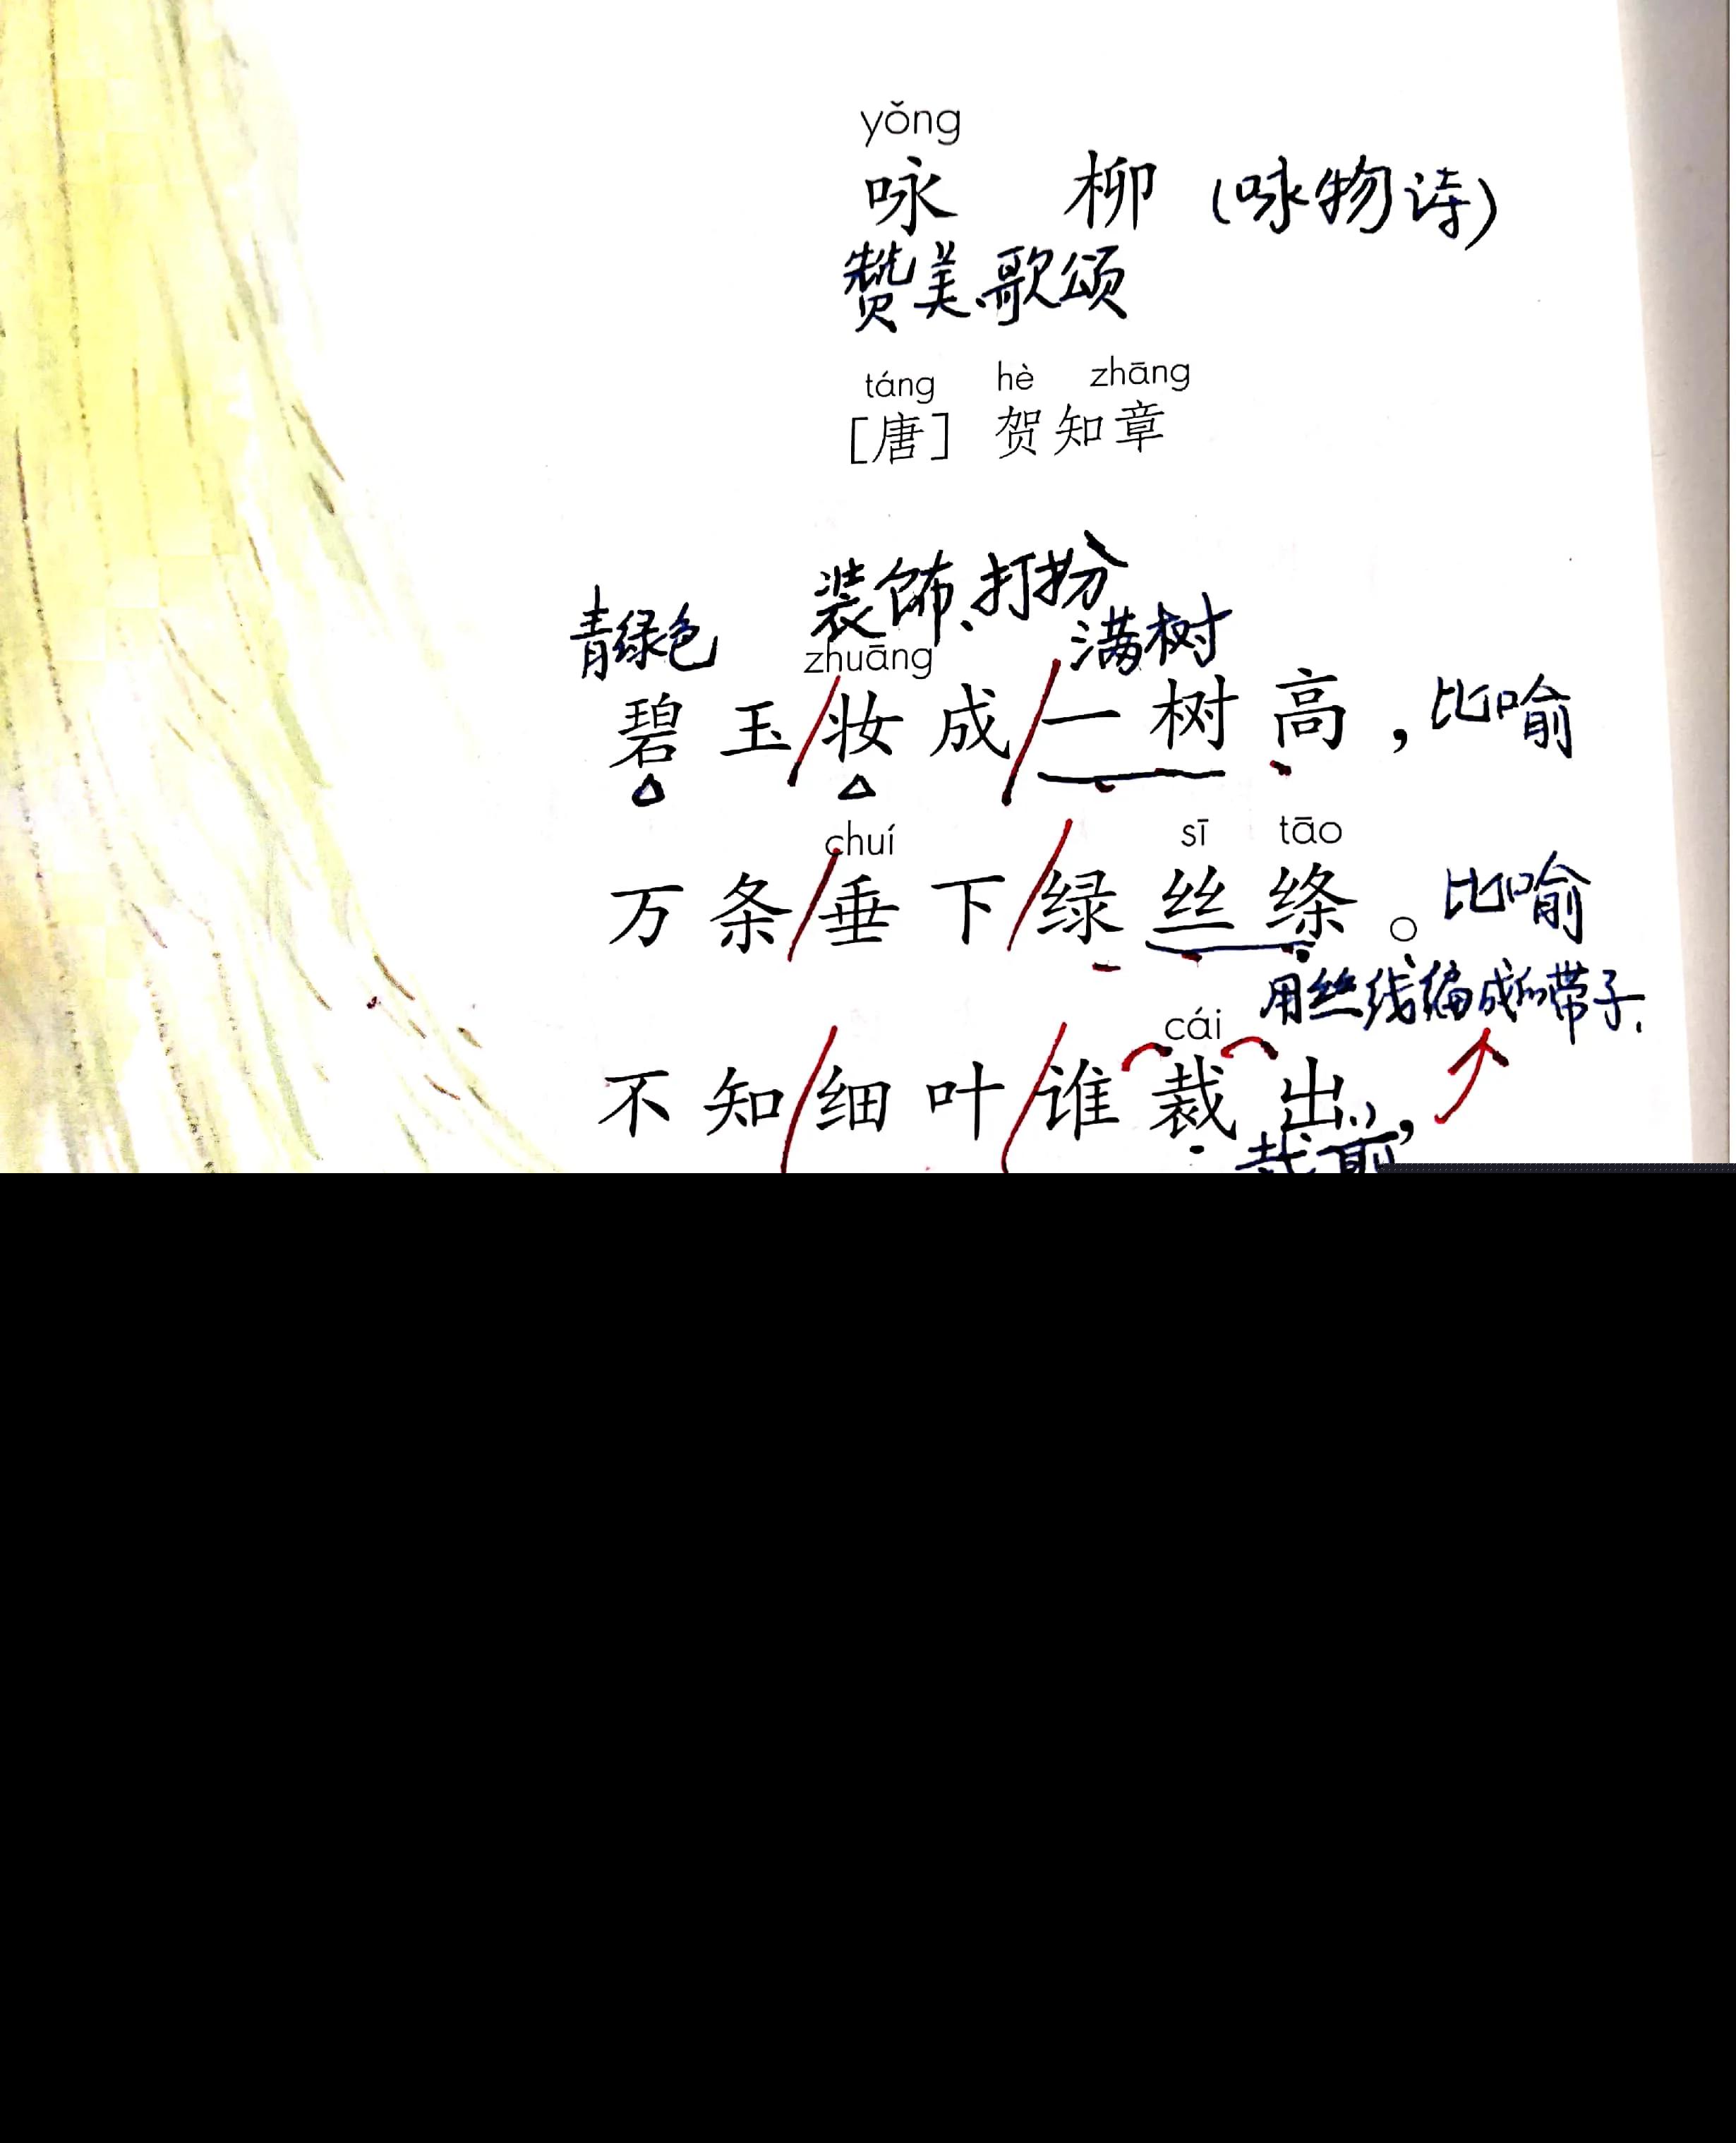 yǒng
咏 柳 (咏物诗)
赞美、歌颂
táng hè zhāng
[唐] 贺知章
装饰、打扮
青绿色 满树
zhuāng
碧玉/妆成/一树高，比喻
chuí sī tāo
万条/垂下/绿丝绦。比喻
用丝线编成的带子.
cái
不知/细叶/谁裁出，
裁剪